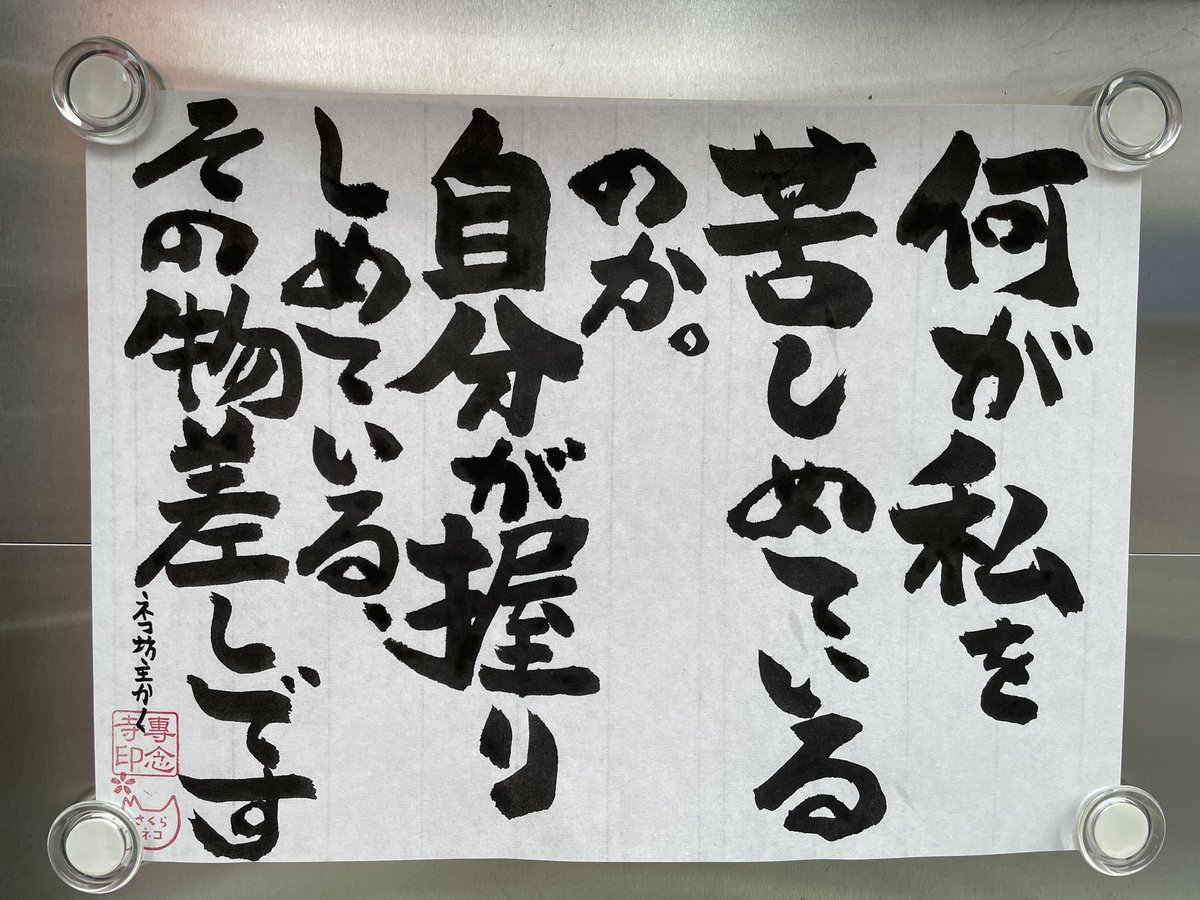 何が私を
苦しめている
のか。
自分が握り
しめている、
その物差しです
ネコ坊主かく
專念
寺印
さくら
ネコ